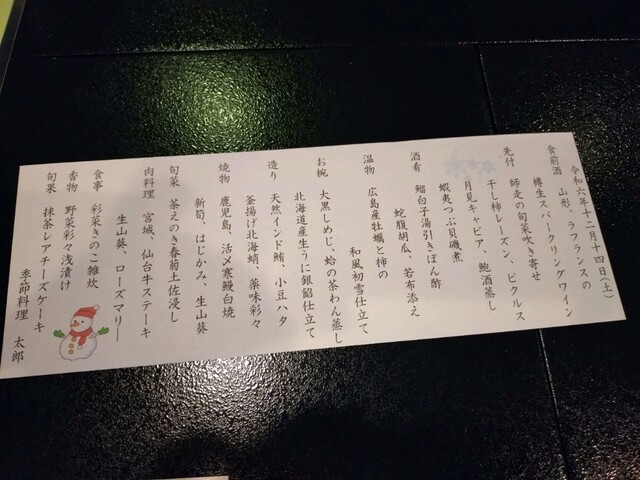 令和六年十二月十四日(土)
食前酒 山形、ラフランスの
樽生スパークリングワイン
先付 師走の旬菜吹き寄せ
干し柿レーズン、ピクルス
月見キャビア、鮑酒蒸し
蝦夷つぶ貝磯煮
酒肴 鱈白子湯引きぽん酢
蛇腹胡瓜、若布添え
温物 広島産牡蠣と柿の
和風初雪仕立て
お椀 大黒しめじ、蛤の茶わん蒸し
北海道産生うに銀餡仕立て
造り 天然インド鮪、小豆ハタ
釜揚げ北海蛸、薬味彩々
焼物 鹿児島、活〆寒鰻白焼
新筍、はじかみ、生山葵
旬菜 茶えのき春菊土佐浸し
肉料理 宮城、仙台牛ステーキ
生山葵、ローズマリー
食事 彩菜きのこ雑炊
香物 野菜彩々浅漬け
旬果 抹茶レアチーズケーキ
季節料理 太郎